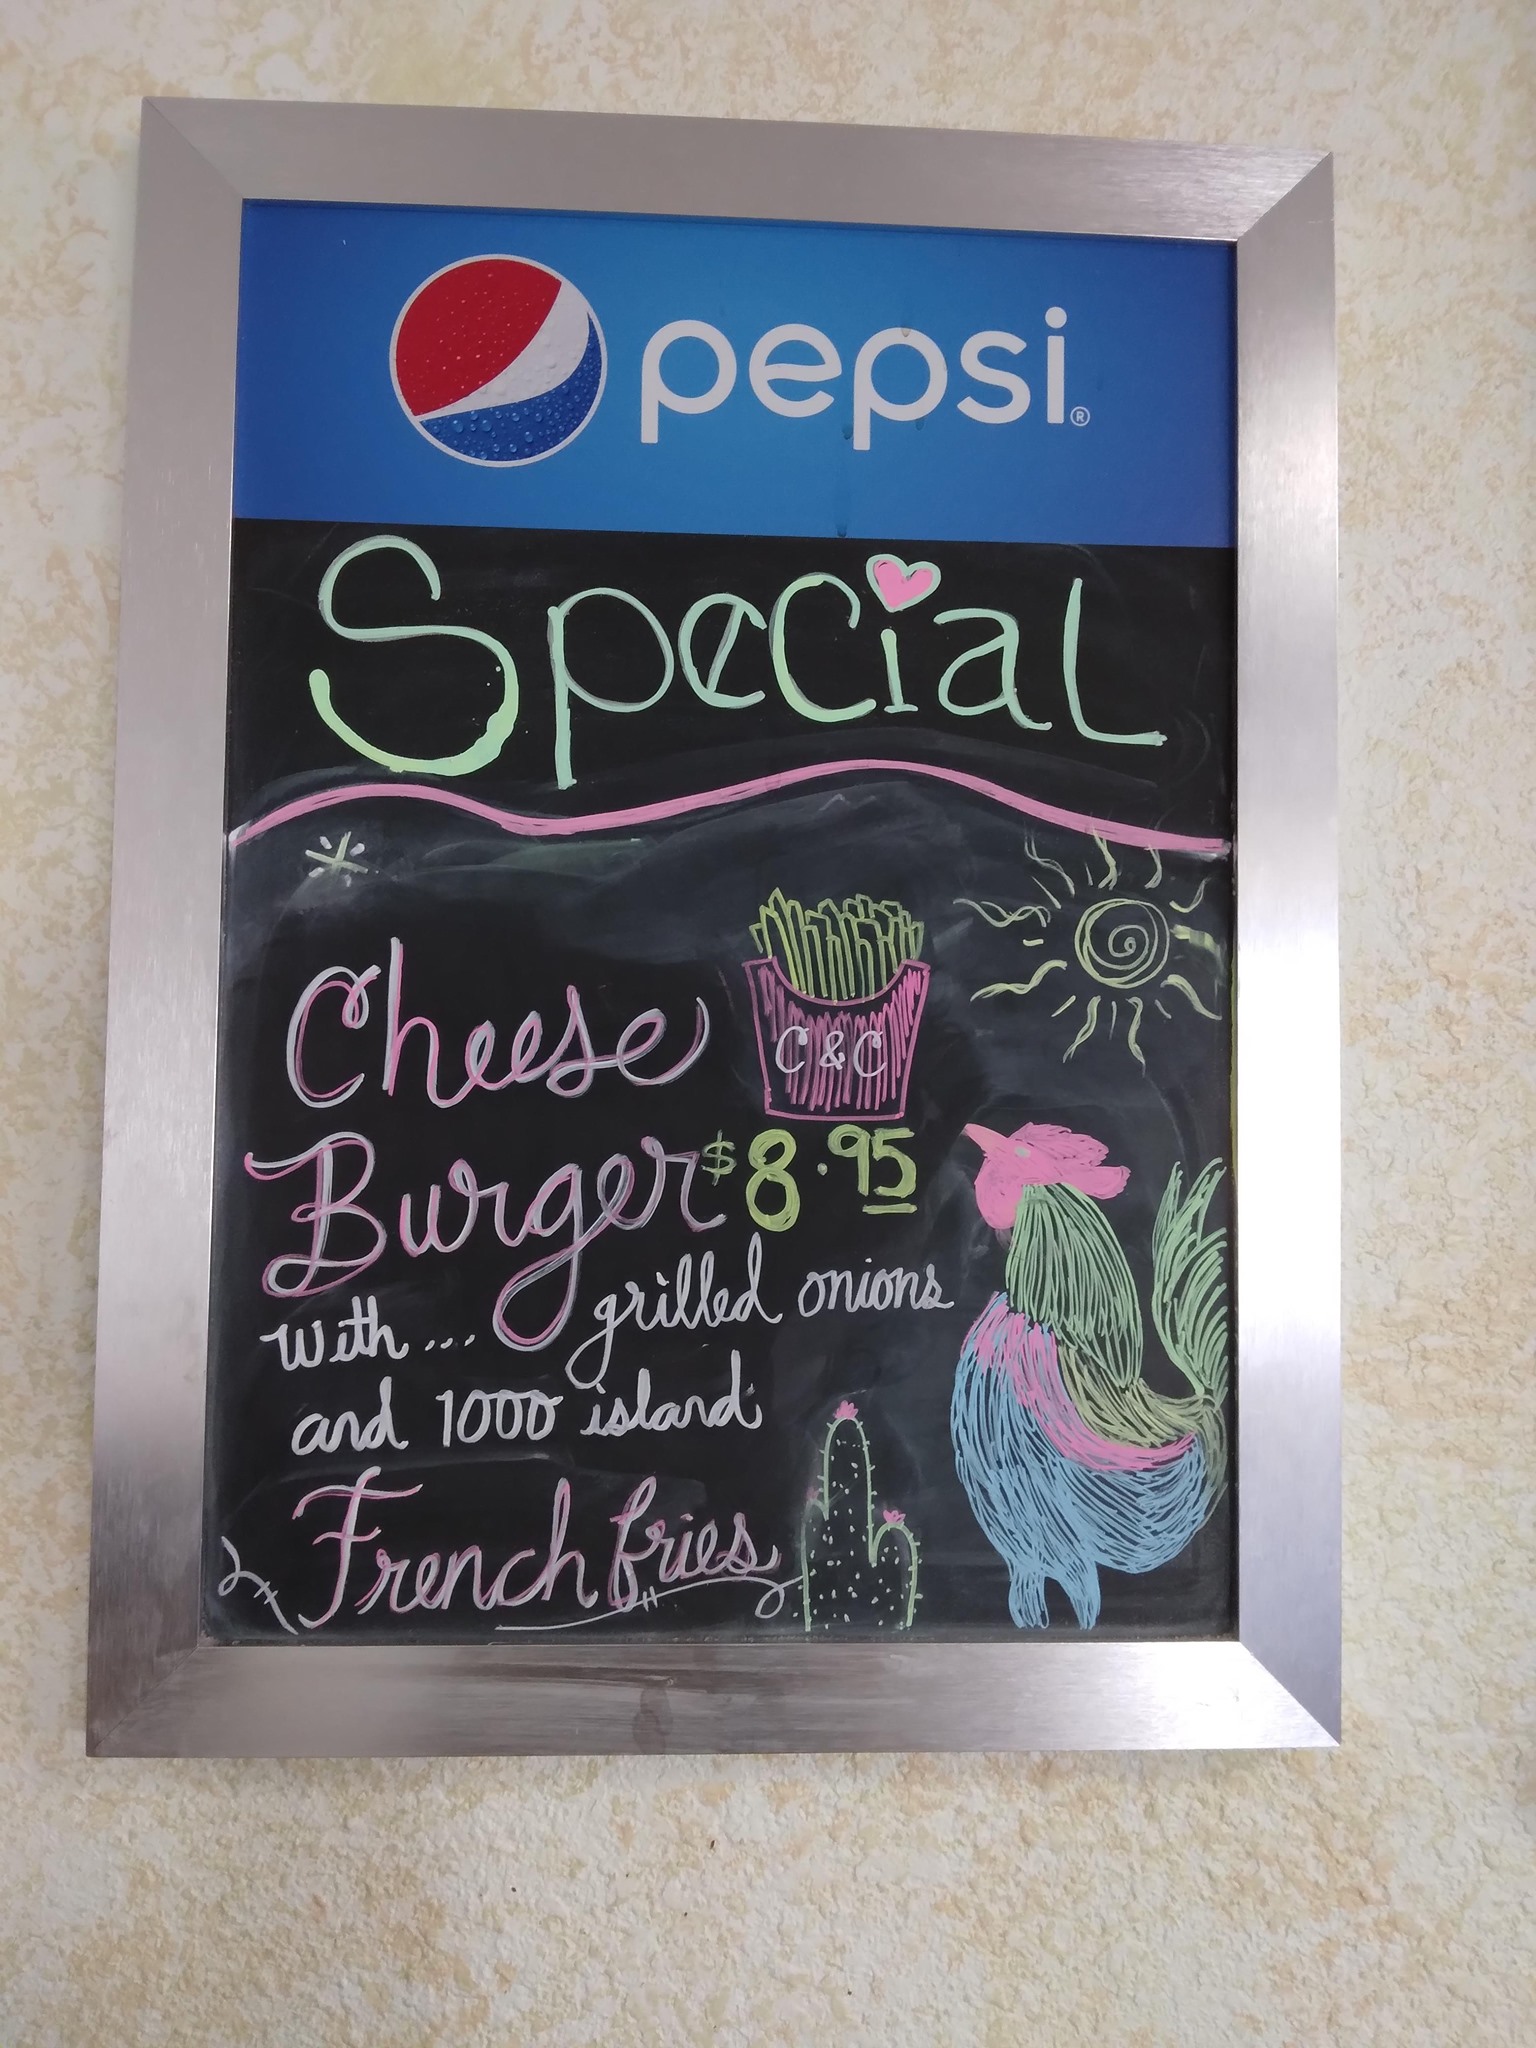 pepsi®
Special
Cheese
C & C
Burger $8.95
with.... grilled onions
and 1000 island
French fries